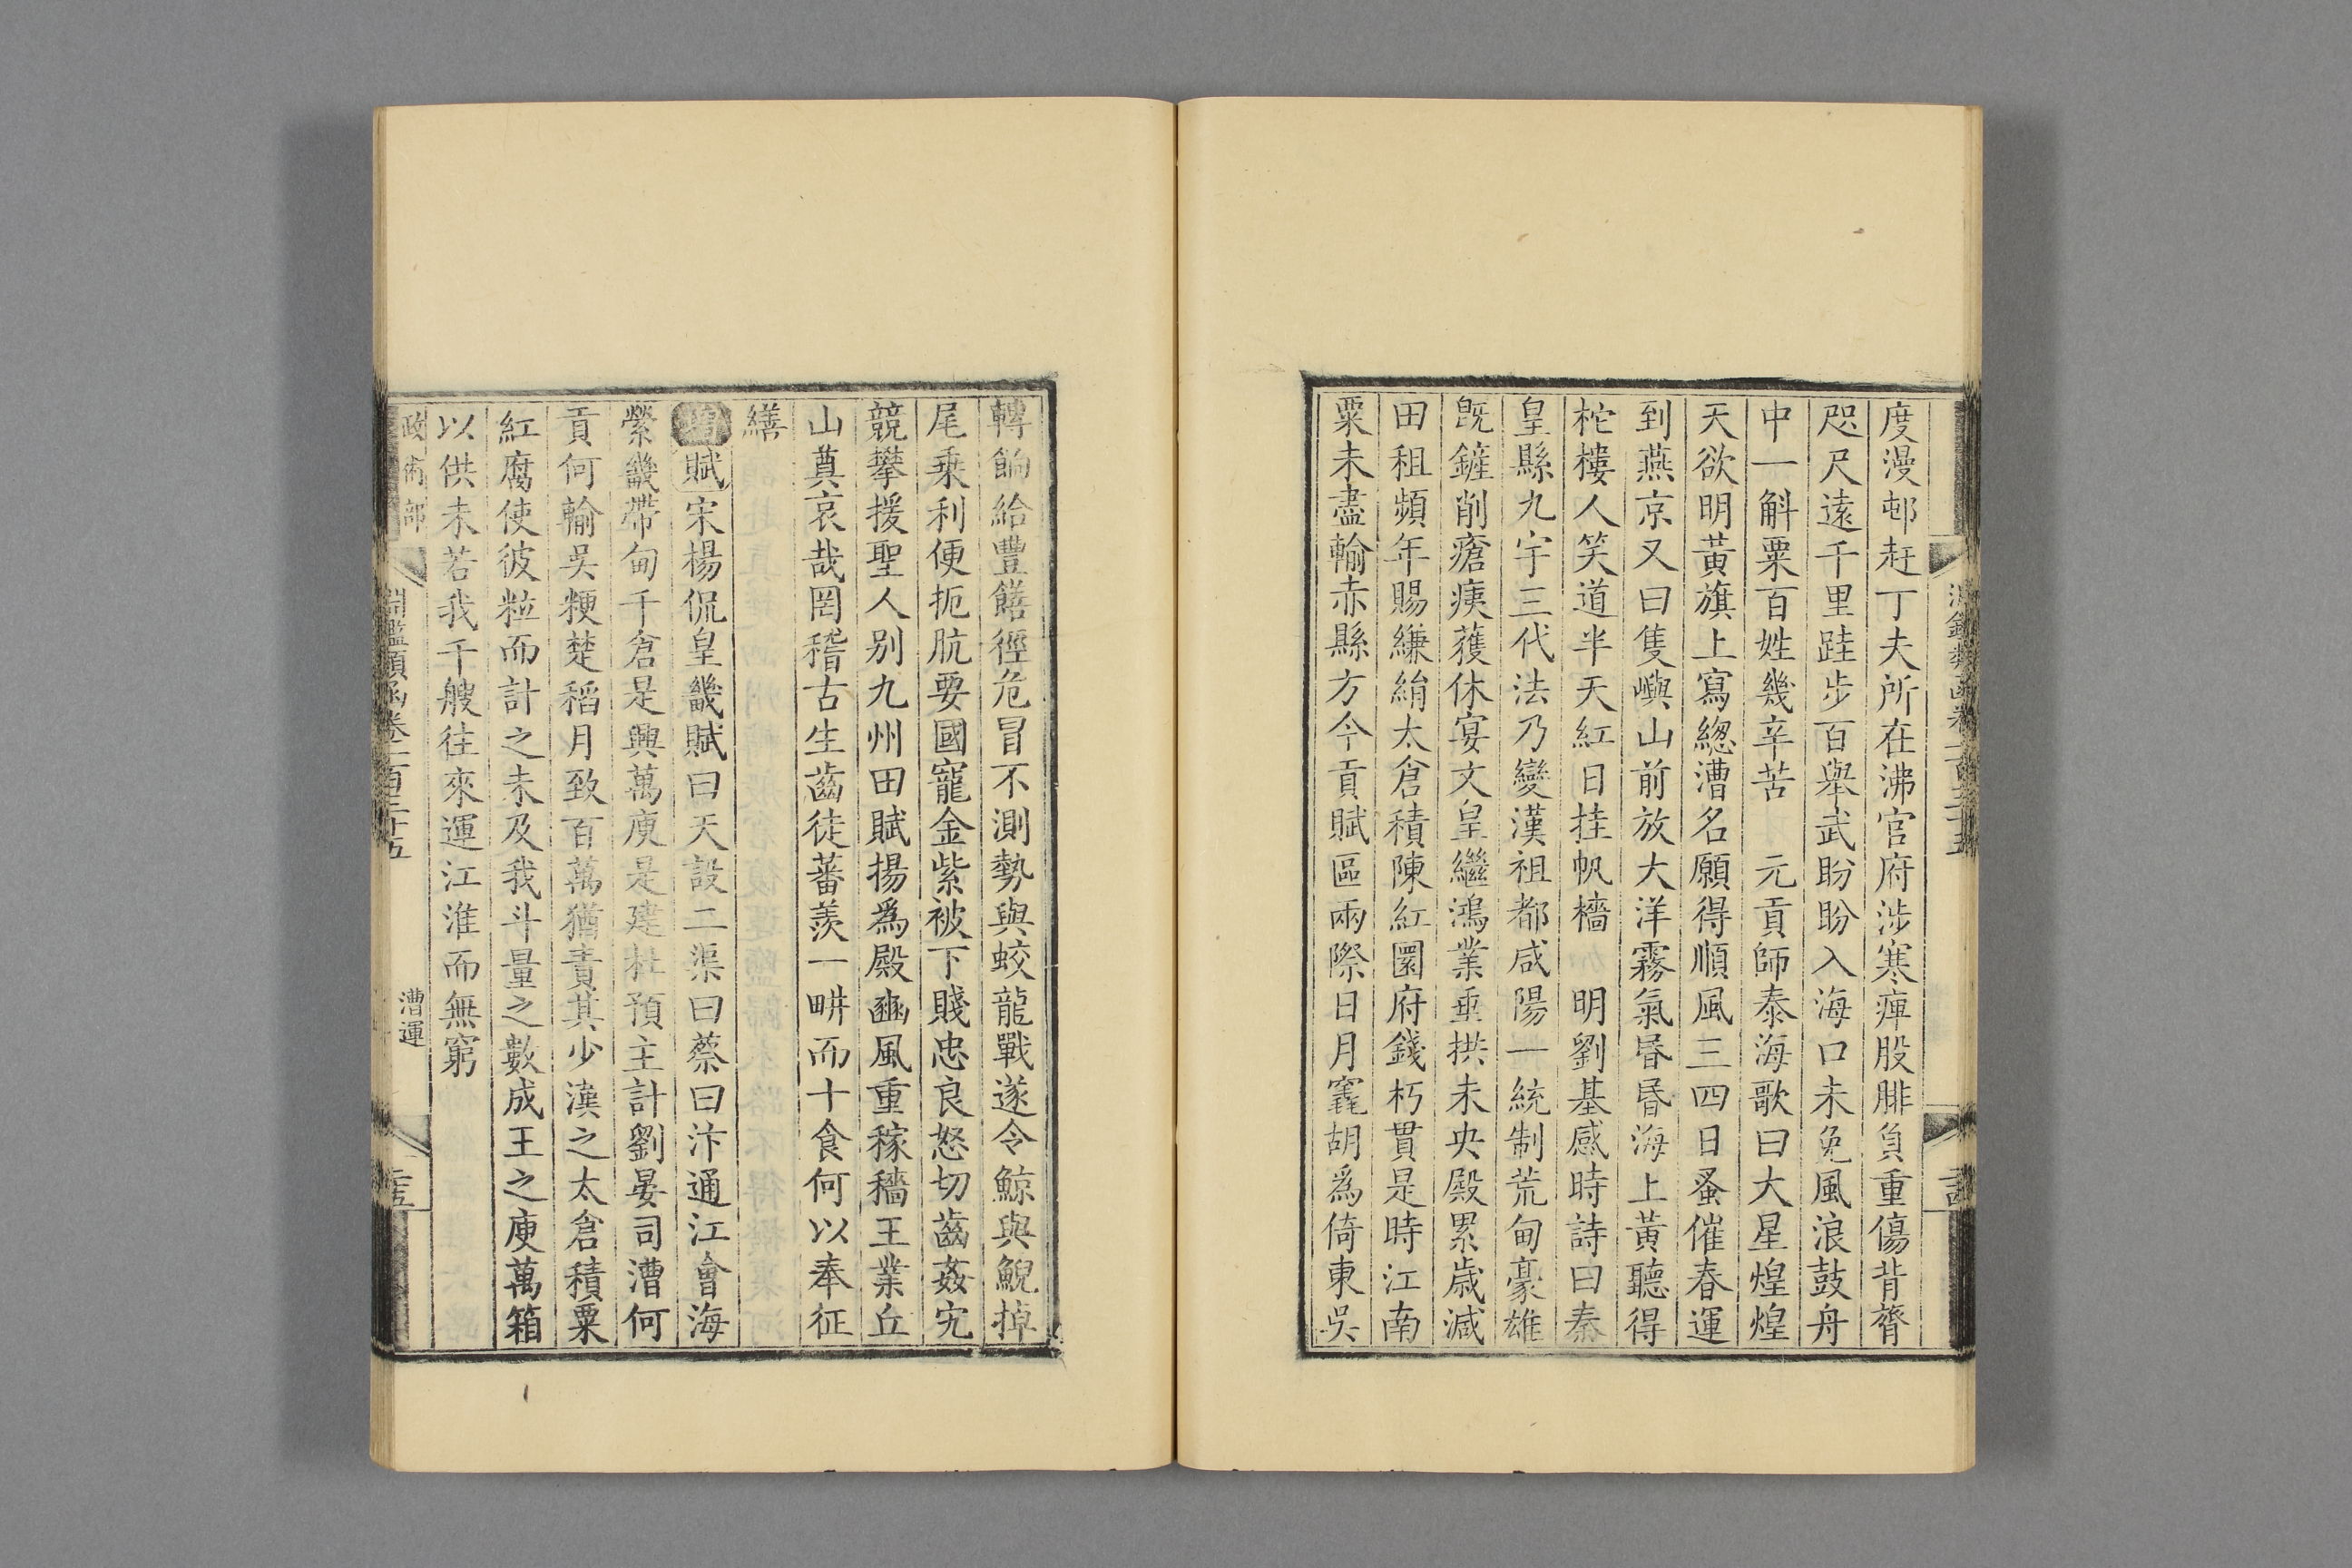 度漫邨赶丁夫所在沸官府涉寒痺股腓負重傷背膂
咫尺遠千里跬步百舉武盼盼入海口未免風浪鼓舟
中一斛粟百姓幾辛苦　元貢師泰海歌曰大星煌煌
天欲明黃旗上寫緫漕名願得順風三四日蚤催春運
到燕京又曰隻嶼山前放大洋霧氣昏昏海上黃聽得
柁樓人笑道半天紅日挂帆檣　明劉基感時詩曰秦
皇縣九宇三代法乃變漢祖都咸陽一統制荒甸豪雄
旣鏟削瘡痍獲休宴文皇繼鴻業垂拱未央殿累歳減
田租頻年賜縑絹太倉積陳紅圜府錢朽貫是時江南
粟未盡輸赤縣方今貢賦區兩際日月竁胡爲倚東吳
轉餉給豐饍徑危冒不測勢與蛟龍戰遂令鯨與鯢掉
尾乘利便扼肮要國寵金紫被下賤忠良怒切齒姦宄
競攀援聖人別九州田賦揚爲殿豳風重稼穡王業丘
山奠哀哉罔稽古生齒徒蕃羨一畊而十食何以奉征
繕
賦宋楊侃皇畿賦曰天設二渠曰蔡曰汴通江會海
縈畿帶甸千倉是興萬庾是建杜預主計劉晏司漕何
貢何輸吳粳楚稻月致百萬猶責其少漢之太倉積粟
紅腐使彼粒而計之未及我斗量之數成王之庾萬箱
以供未若我千艘往來運江淮而無窮
政術部
淵鑑類函卷一百三十五
漕運